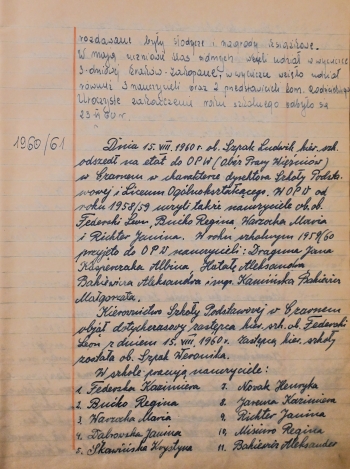 rozdawane były słodycze i nagrody książkowe.
W maju uczniowie klas siódmych wzięli udział w wycieczce
3-dniowej Kraków-Zakopane, w wycieczce wzięło udział
również 3 nauczycieli oraz 2 przedstawicieli kom. Rodzicielskiego
Uroczyste zakończenie roku szkolnego odbyło się
23 VI 60 r.
1960/61
Dnia 15. VIII. 1960 r. ob. Szpak Ludwik kier. szk.
odszedł na etat do OPW (obóz Pracy Więźniów)
w w charakterze dyrektora Szkoły Podsta-
wowej i Liceum Ogólnokształcącego. W OPW od
roku 1958/59 uczyli także nauczyciele ob. ob.
Federski Leon, Bućko Regina, Warzocha Maria
i Richter Janina. W roku szkolnym 1959/60
przyjęto do OPW nauczycieli: Jana
Albina, Aleksandra
Bakiewicz Aleksandra i mgr. Kamińska
Małgorzata.
Kierownictwo Szkoły Podstawowej w
objął dotychczasowy zastępca kier. szk. ob. Federski
Leon z dniem 15. VIII. 1960 r. Zastępcą kier. szkoły
została ob. Szpak Weronika.
W szkole pracują nauczyciele:
1. Federska Kazimiera 7. Nowak Henryka
2. Bućko Regina 8. Kazimiera
3. Warzocha Maria 9. Richter Janina
4. Dąbrowska Janina 10. Regina
5. Skawińska Krystyna 11. Bakiewicz Aleksander